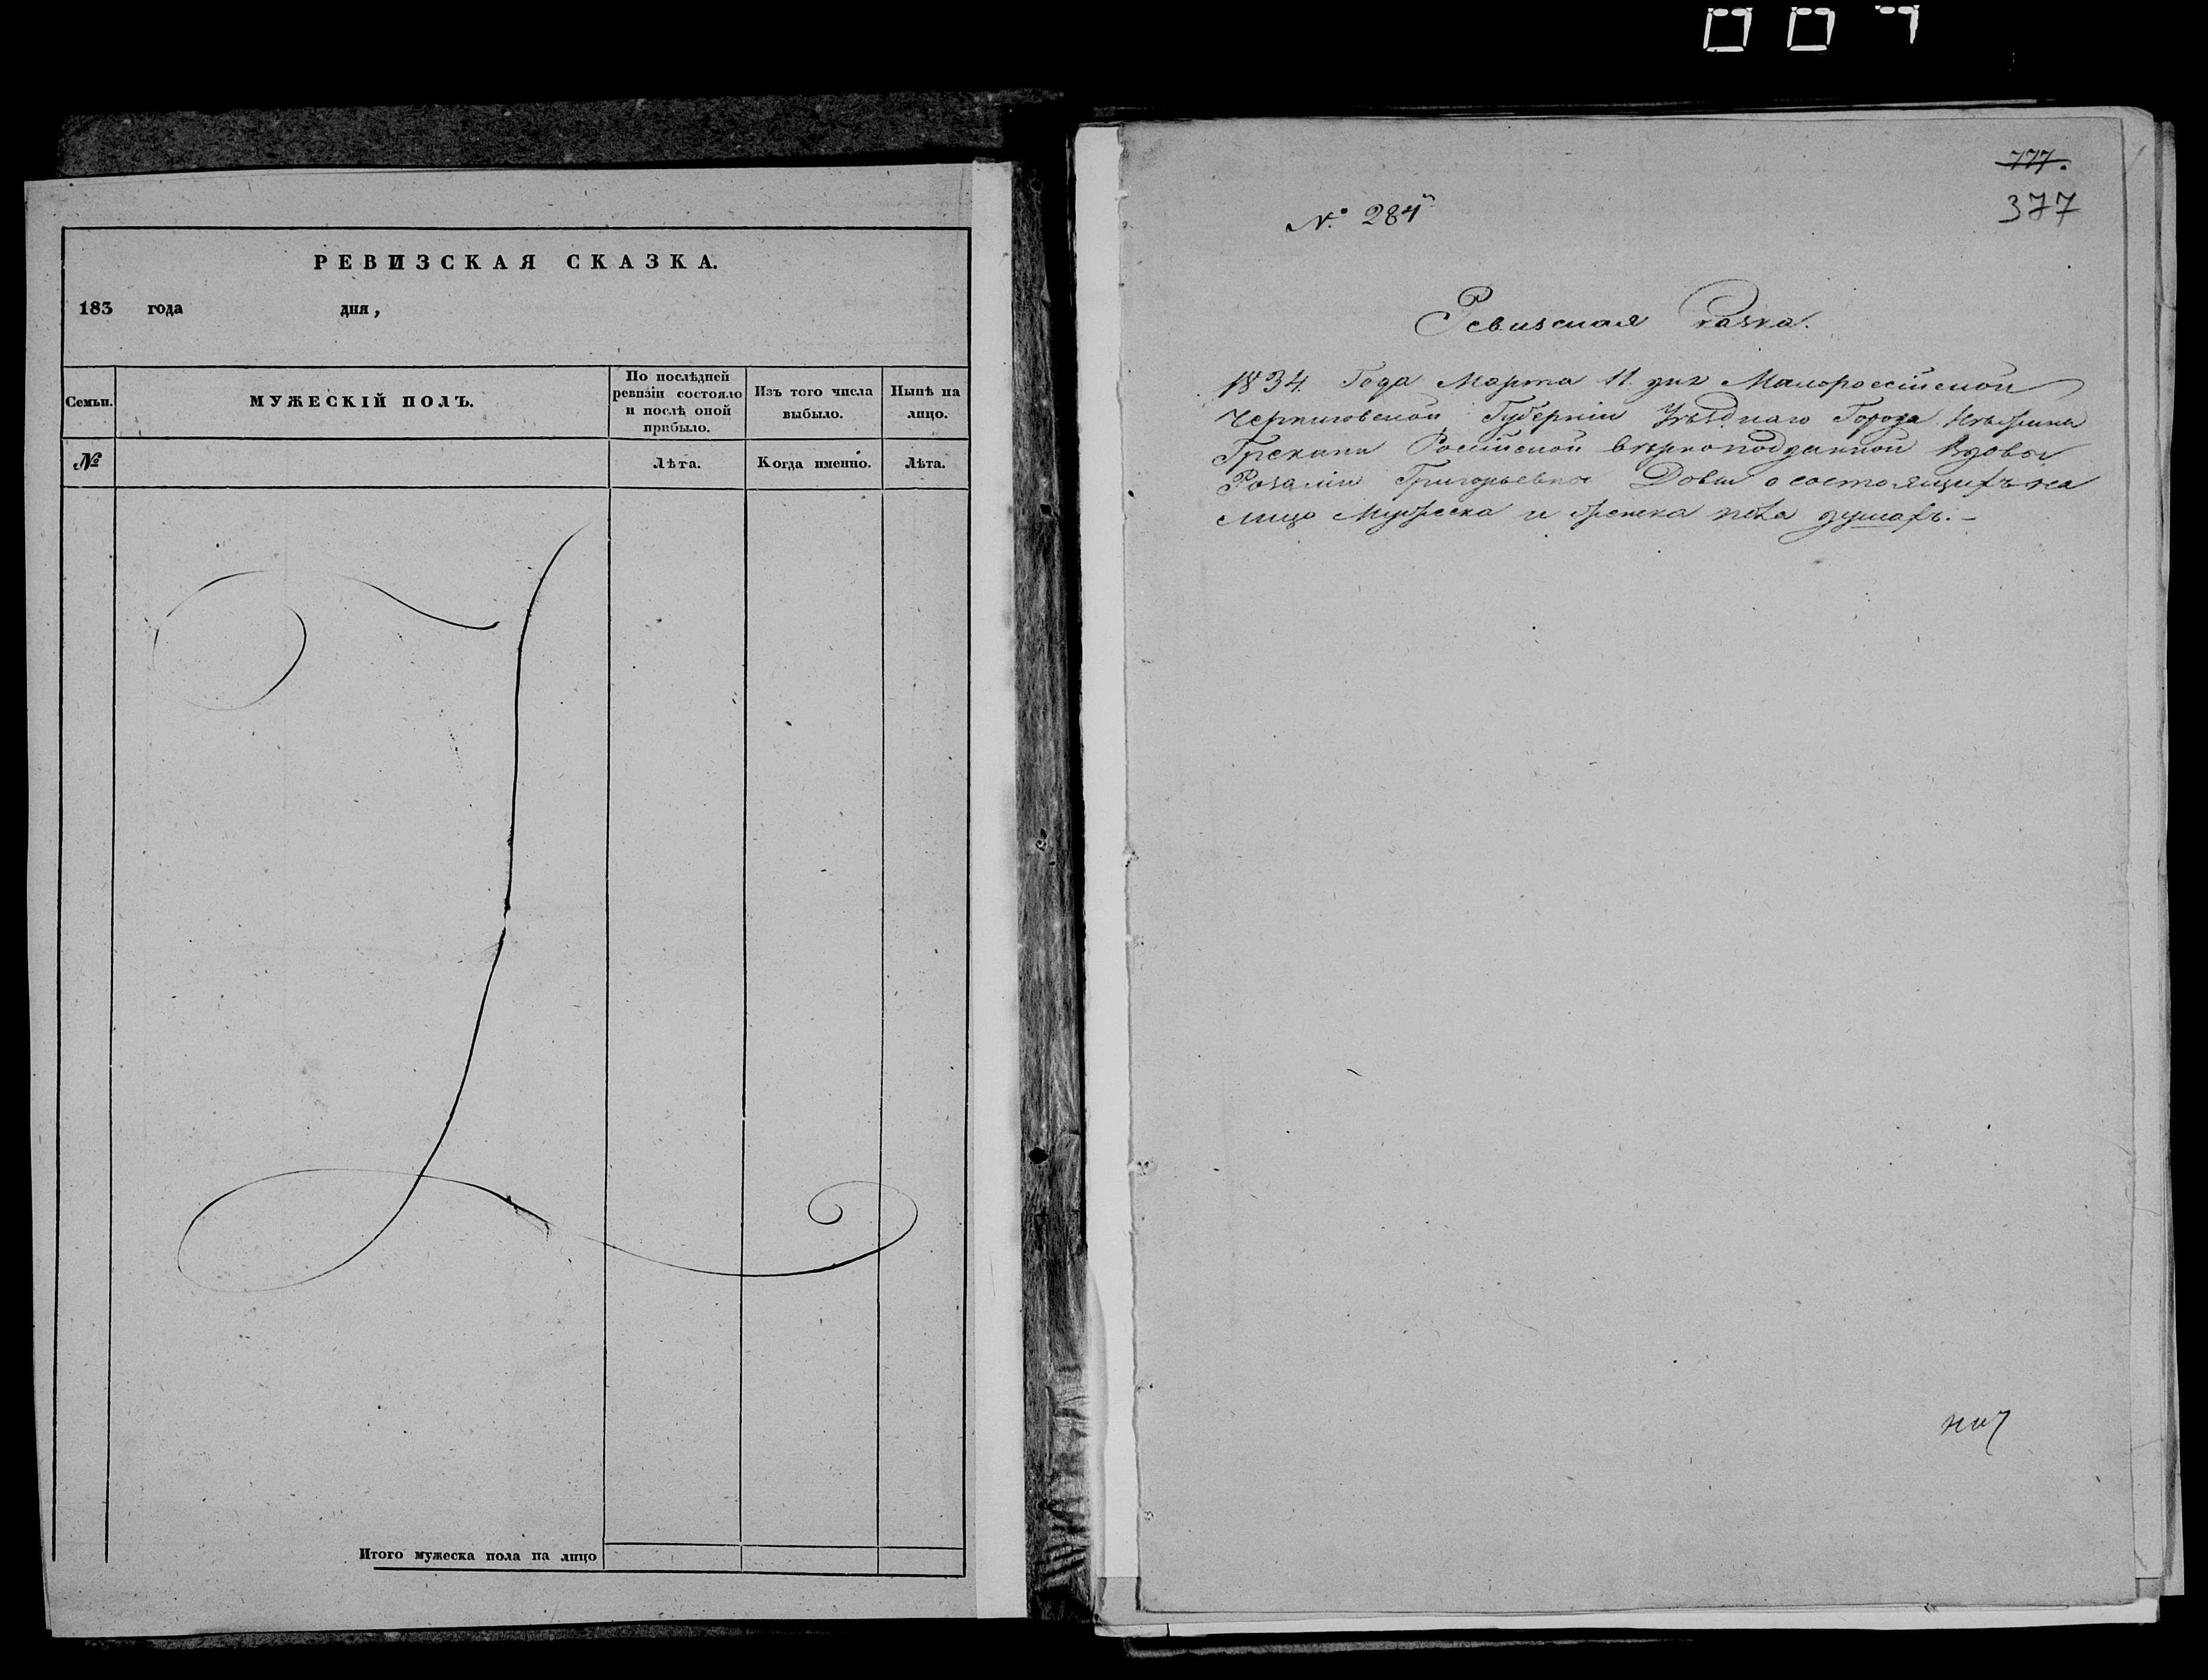 РЕВИЗСКАЯ СКАЗКА.
183 года дня,
Семьи.
МУЖЕСКІЙ ПОЛЪ.
По послѣдней
ревизіи состояло
и послѣ оной
прибыло.
Изъ того числа
выбыло.
Нынѣ на
лицо.
№
Лѣта.
Когда именно.
Лѣта.
Итого мужеска пола на лицо
777.
377
№ 284
Ревизская Сказка.
1834 Года Марта 11 дня Малороссійской
Черниговской Губерніи Уѣзднаго Города Нѣжина
Грекини Россійской вѣрноподданной Вдовы
Розаліи Григорьевны о состоящихъ на
лицо Мужеска и женска пола душахъ.